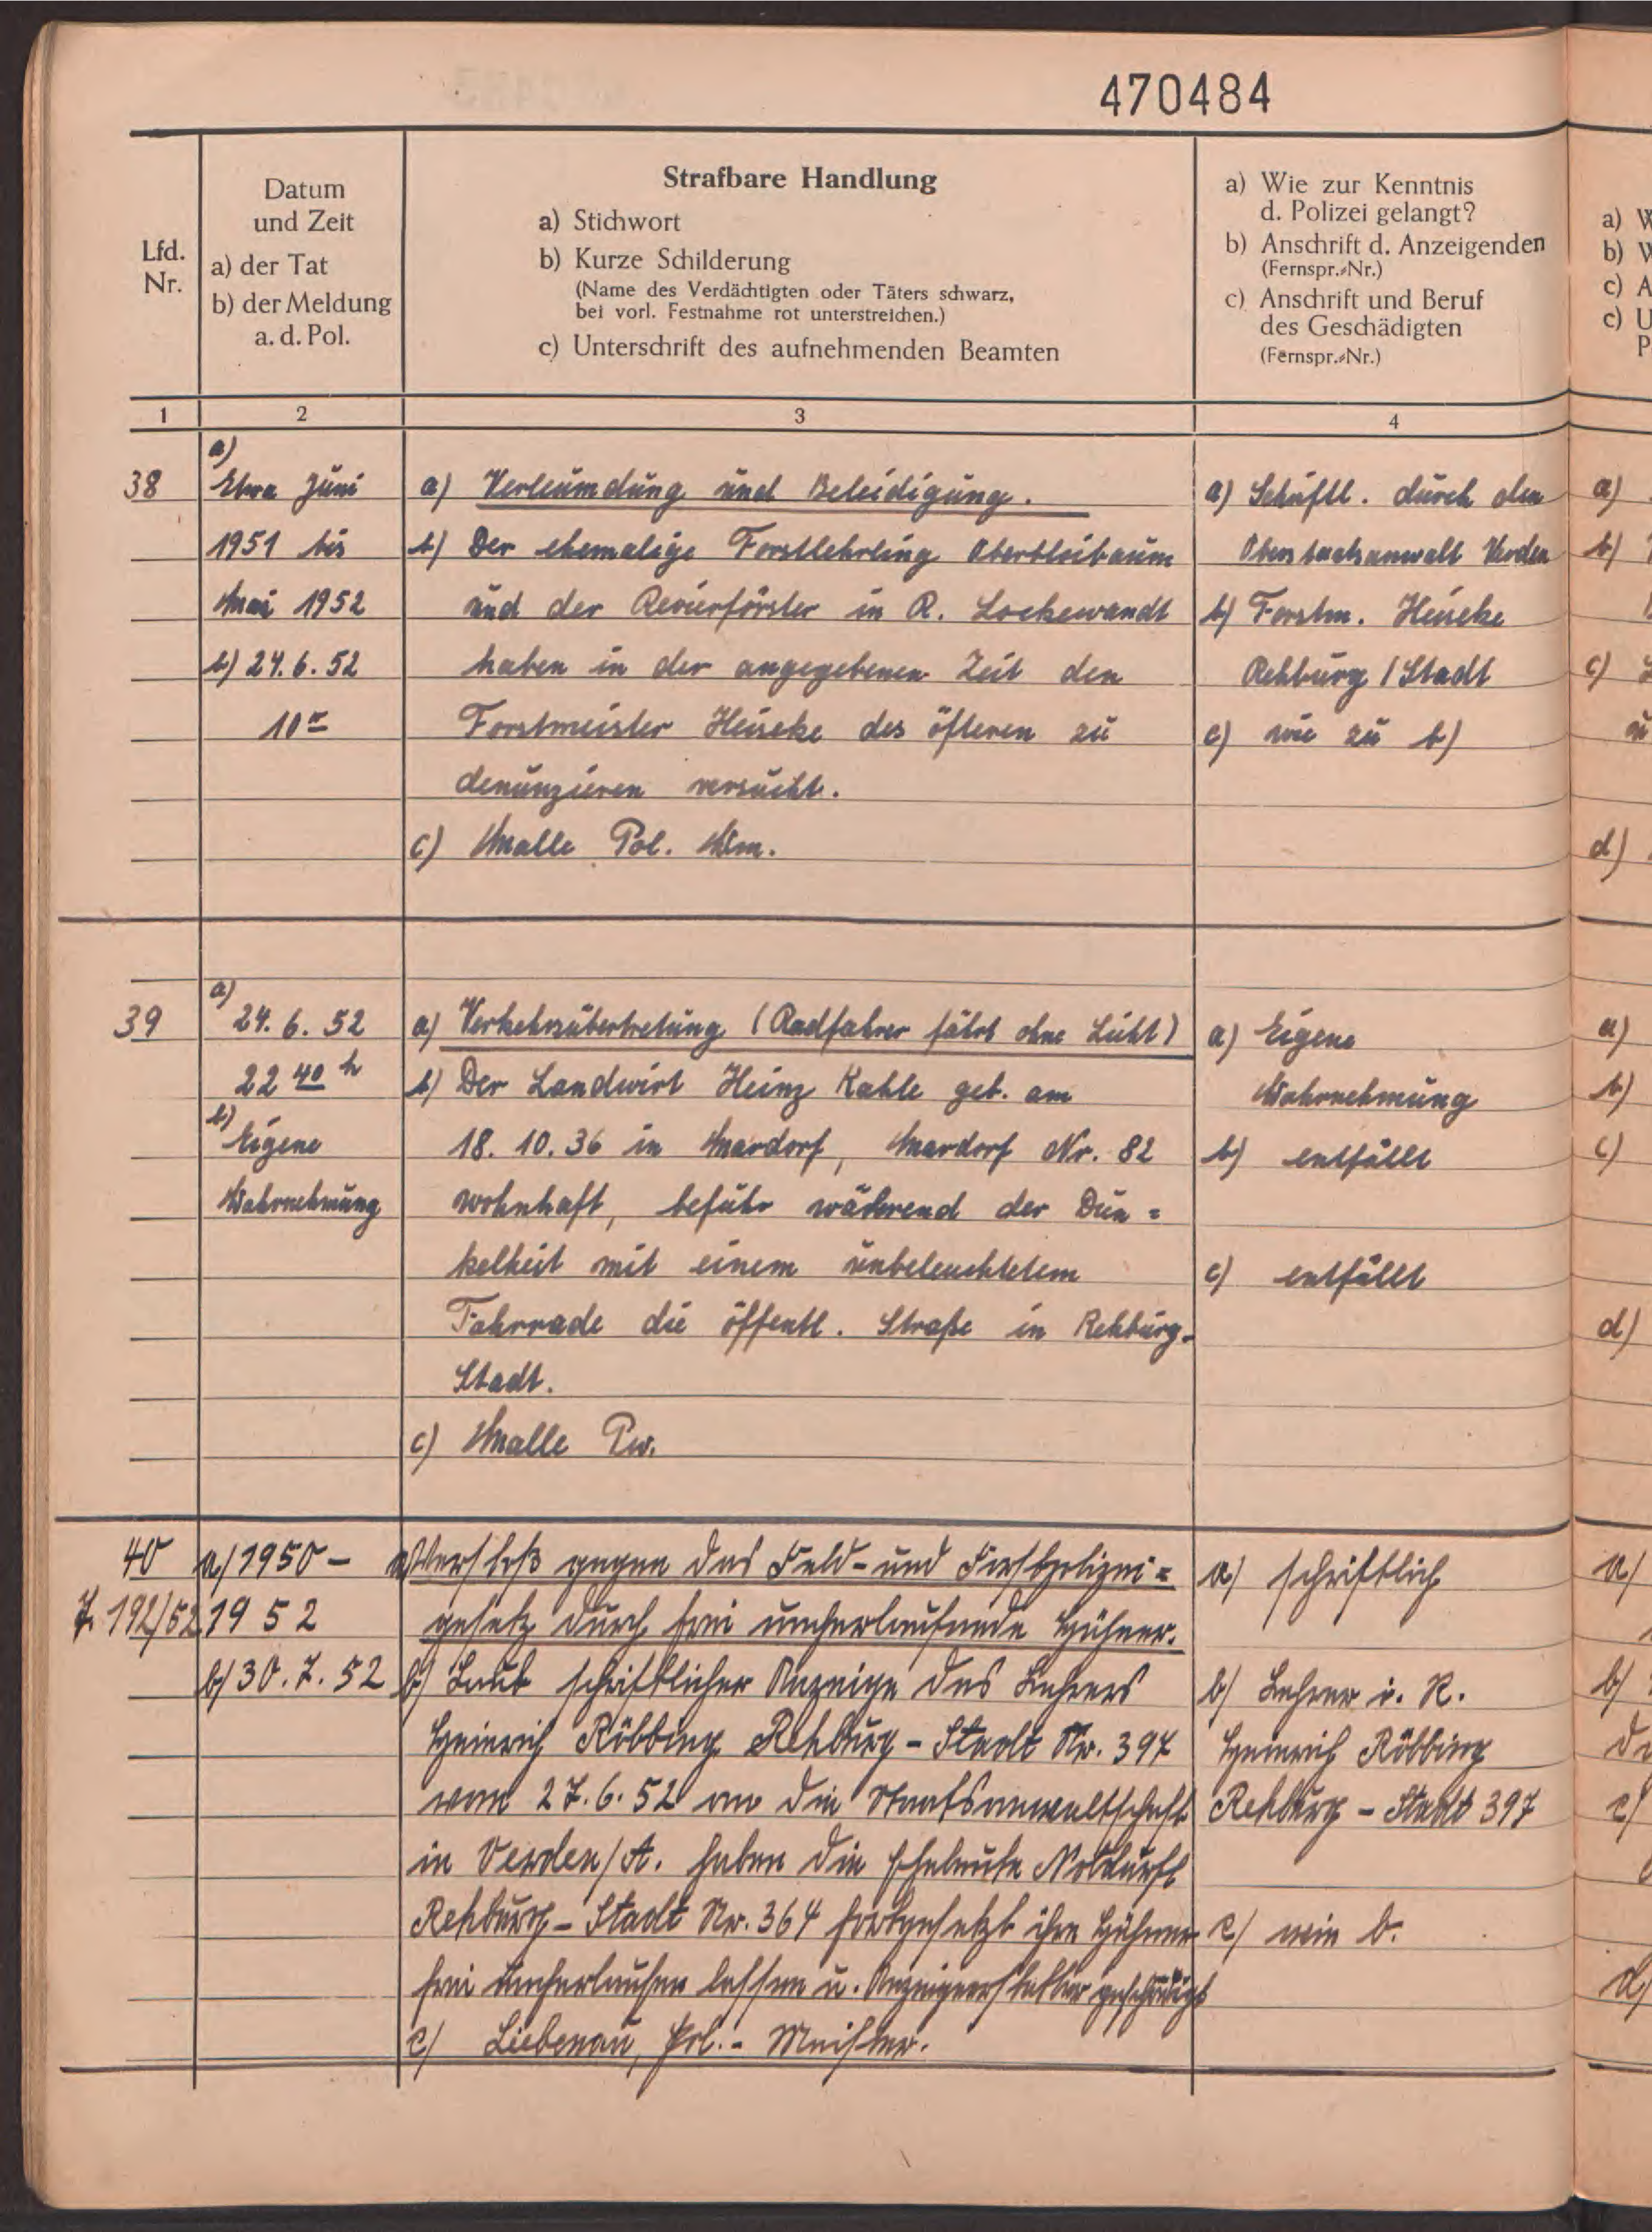 470484
Lfd.
Nr.
Datum
und Zeit
a) der Tat
b) der Meldung
a. d. Pol.
Strafbare Handlung
a) Stichwort
b) Kurze Schilderung
(Name des Verdächtigten oder Täters schwarz,
bei vorl. Festnahme rot unterstreichen.)
c) Unterschrift des aufnehmenden Beamten
a) Wie zur Kenntnis
d. Polizei gelangt?
b) Anschrift d. Anzeigenden
(Fernspr.-Nr.)
c) Anschrift und Beruf
des Geschädigten
(Fernspr.-Nr.)
1
2
3
4
38
a)
Etwa Juni
1951 bis
Mai 1952
b) 24.6.52
10
a) Verleumdung und Beleidigung.
b) Der ehemalige Forstlehrling Oberbloibaum
und der Revierförster in R. Lockewandt
haben in der angegebenen Zeit den
Forstmeister Heineke des öfteren zu
denunzieren versucht.
c) Malle Pol. Wm.
a) Schriftl. durch den
Oberstaatsanwalt Verden
b) Forstm. Heineke
Rehburg / Stadt
c) wie zu b)
39
a)
24. 6. 52
22 40 h
b)
Eigene
Wahrnehmung
a) Verkehrsübertretung (Radfahrer fährt ohne Licht)
b) Der Landwirt Heinz Kahle geb. am
18. 10. 36 in Mardorf, Mardorf Nr. 82
wohnhaft, befuhr während der Dun =
kelheit mit einem unbeleuchtetem
Fahrrade die öffentl. Straße in Rehburg-
Stadt.
c) Malle Pw.
a) Eigene
Wahrnehmung
b) entfällt
c) entfällt
40
192/52
a/ 1950 –
1952
b/ 30. 7. 52
a/ Verstoß gegen das Feld- und Forstpolizei =
gesetz durch frei umherlaufende Hühner.
b/ Laut schriftlicher Anzeige des Lehrers
Heinrich Röbbing Rehburg – Stadt Nr. 397
vom 27. 6. 52 an die Staatsanwaltschaft
in Verden/A. haben die Eheleute Notdurft
Rehburg – Stadt Nr. 364 fortgesetzt ihre Hühner
frei umherlaufen lassen u. Anzeigeerstatter geschädigt
c/ Liebenau, Pol. - Meister.
a/ schriftlich
b/ Lehrer i. R.
Heinrich Röbbing
Rehburg – Stadt 397
c/ wie b.